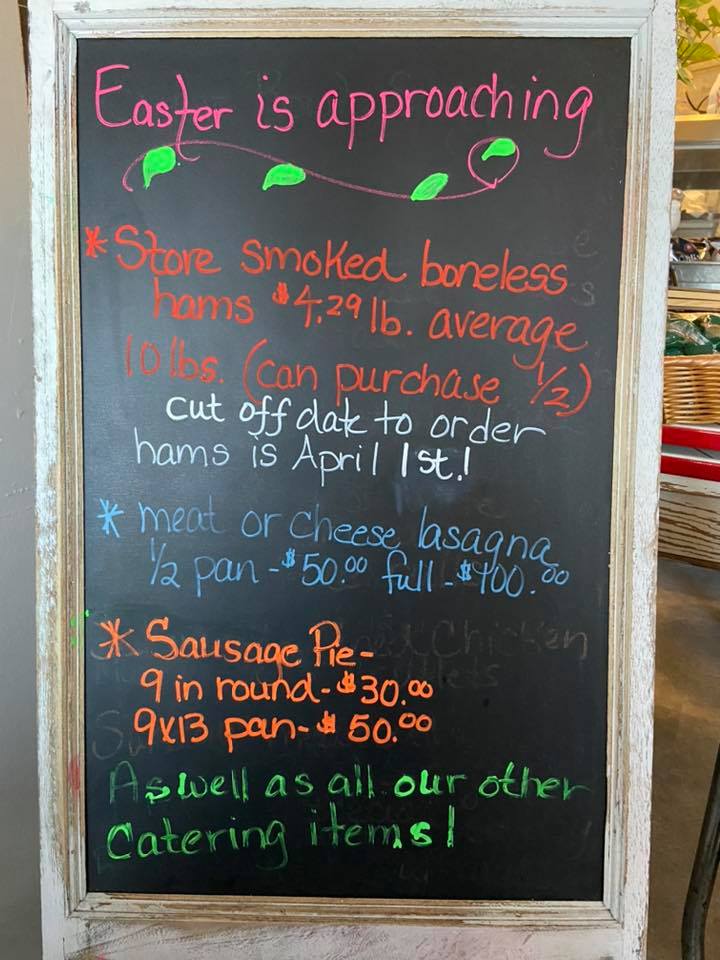 Easter is approaching
* Store smoked boneless
hams $4.29 lb. average
10 lbs. (can purchase 1/2)
cut off date to order
hams is April 1st!
* meat or cheese lasagna
1/2 pan - $50.00 full - $100.00
* Sausage Pie -
9 in round - $30.00
9x13 pan - $50.00
As well as all our other
Catering items!